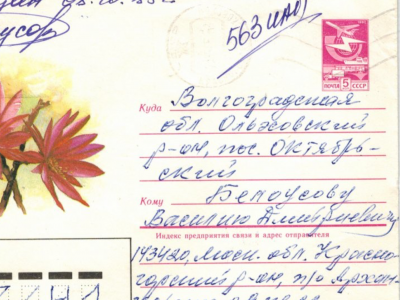 563 ИАИ
ПОЧТА 5 СССР
Куда Волгоградская
обл. Ольховский
р-он, пос. Октябрь-
ский
Кому Белоусову
Василию Дмитриевичу
Индекс предприятия связи и адрес отправителя
143420, Моск. обл. Красно-
горский р-он, п/о Архан-